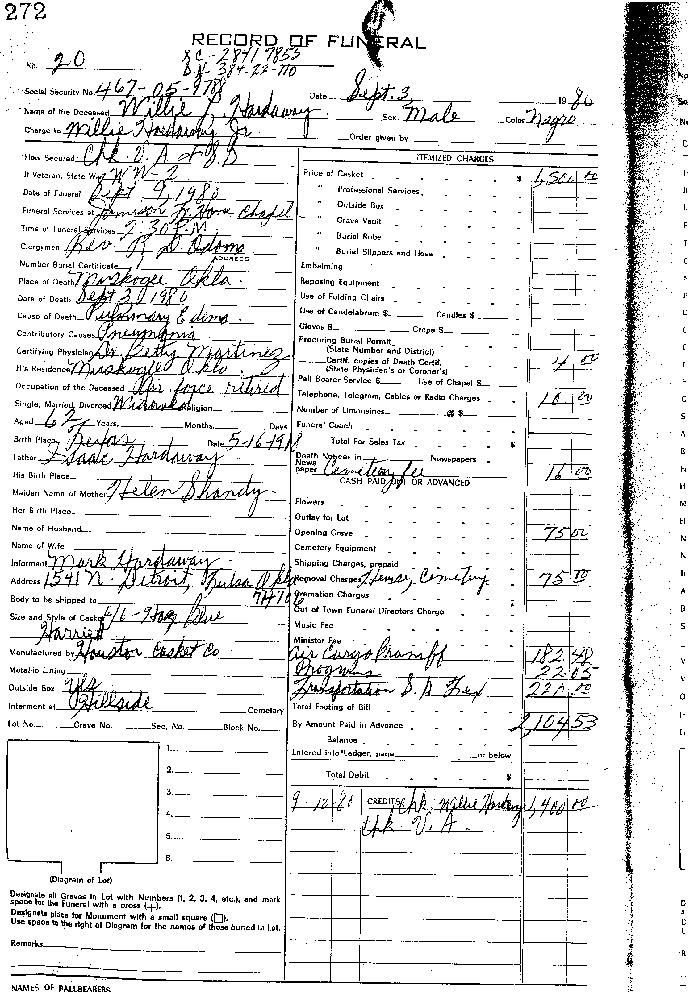 272
RECORD OF FUNERAL
No. 20
Social Security No. 467-05-978
Date Sept. 3 1980
Name of the Deceased Willie L. Hardaway Sex Male Color Negro
Charge to Willie Hardaway Jr. Order given by
How Secured Chk V. A + S S
If Veteran, State War W W - 2
Date of Funeral Sept 9, 1980
Funeral Services at Chapel
Time of Funeral Services 2:30 P.M
Clergyman Rev. R. D. Adams
ADDRESS
Number Burial Certificate
Place of Death Muskogee Okla.
Date of Death Sept 3 1980
Cause of Death Pulmonary Edema
Contributory Causes Pneumonia
Certifying Physician Dr. Martinez
His Residence Muskogee Okla.
Occupation of the Deceased Air force retired
Single, Married, Divorced Widowed Religion
Aged 62 Years, Months, Days
Birth Place Texas Date 5-16-1918
Father Isaac Hardaway
His Birth Place
Maiden Name of Mother Helen Shandy
Her Birth Place
Name of Husband
Name of Wife
Informant Mark Hardaway
Address 1541 N. Detroit, Tulsa Okla
74106
Body to be shipped to
Size and Style of Casket 6/6 - Blue
Manufactured by Houston Casket Co
Metallic Lining
Outside Box yes
Interment at Hillside Cemetery
Lot No. Grave No. Sec. No. Block No.
1.
2.
3.
4.
5.
6.
(Diagram of Lot)
Designate all Graves in Lot with Numbers (1, 2, 3, 4, etc.), and mark
space for the Funeral with a cross (+).
Designate place for Monument with a small square (□).
Use space to the right of Diagram for the names of those buried in Lot.
Remarks
NAMES OF PALLBEARERS
ITEMIZED CHARGES
Price of Casket $ 1,501 00
" Professional Services
" Outside Box
" Grave Vault
" Burial Robe
" Burial Slippers and Hose
Embalming
Reposing Equipment
Use of Folding Chairs
Use of Candelabrum $ Candles $
Gloves $ Crepe $
Procuring Burial Permit
(State Number and District)
Certif. copies of Death Certif. 4 00
(State Physician's or Coroner's)
Pall Bearer Service $ Use of Chapel $
Telephone, Telegram, Cables or Radio Charges 10 00
Number of Limousines @ $
Funeral Coach
Total For Sales Tax $
Death Notices in Newspapers
News
paper Cemetery fee 16 00
CASH PAID OUT OR ADVANCED
Flowers
Outlay for Lot
Opening Grave 75 00
Cemetery Equipment
Shipping Charges, prepaid
Removal Charges Hearse, Cemetery 75 00
Cremation Charges
Out of Town Funeral Directors Charge
Music Fee
Minister Fee
Air Cargo Braniff 182 48
Programs 22 05
Transportation S. A. Tex
Total Footing of Bill
By Amount Paid in Advance 2,104 53
Balance
Entered into Ledger, page or below
Total Debit $
9-12-80 CREDITS Chk. Willie Hardaway 1,400 00
Chk. V. A.